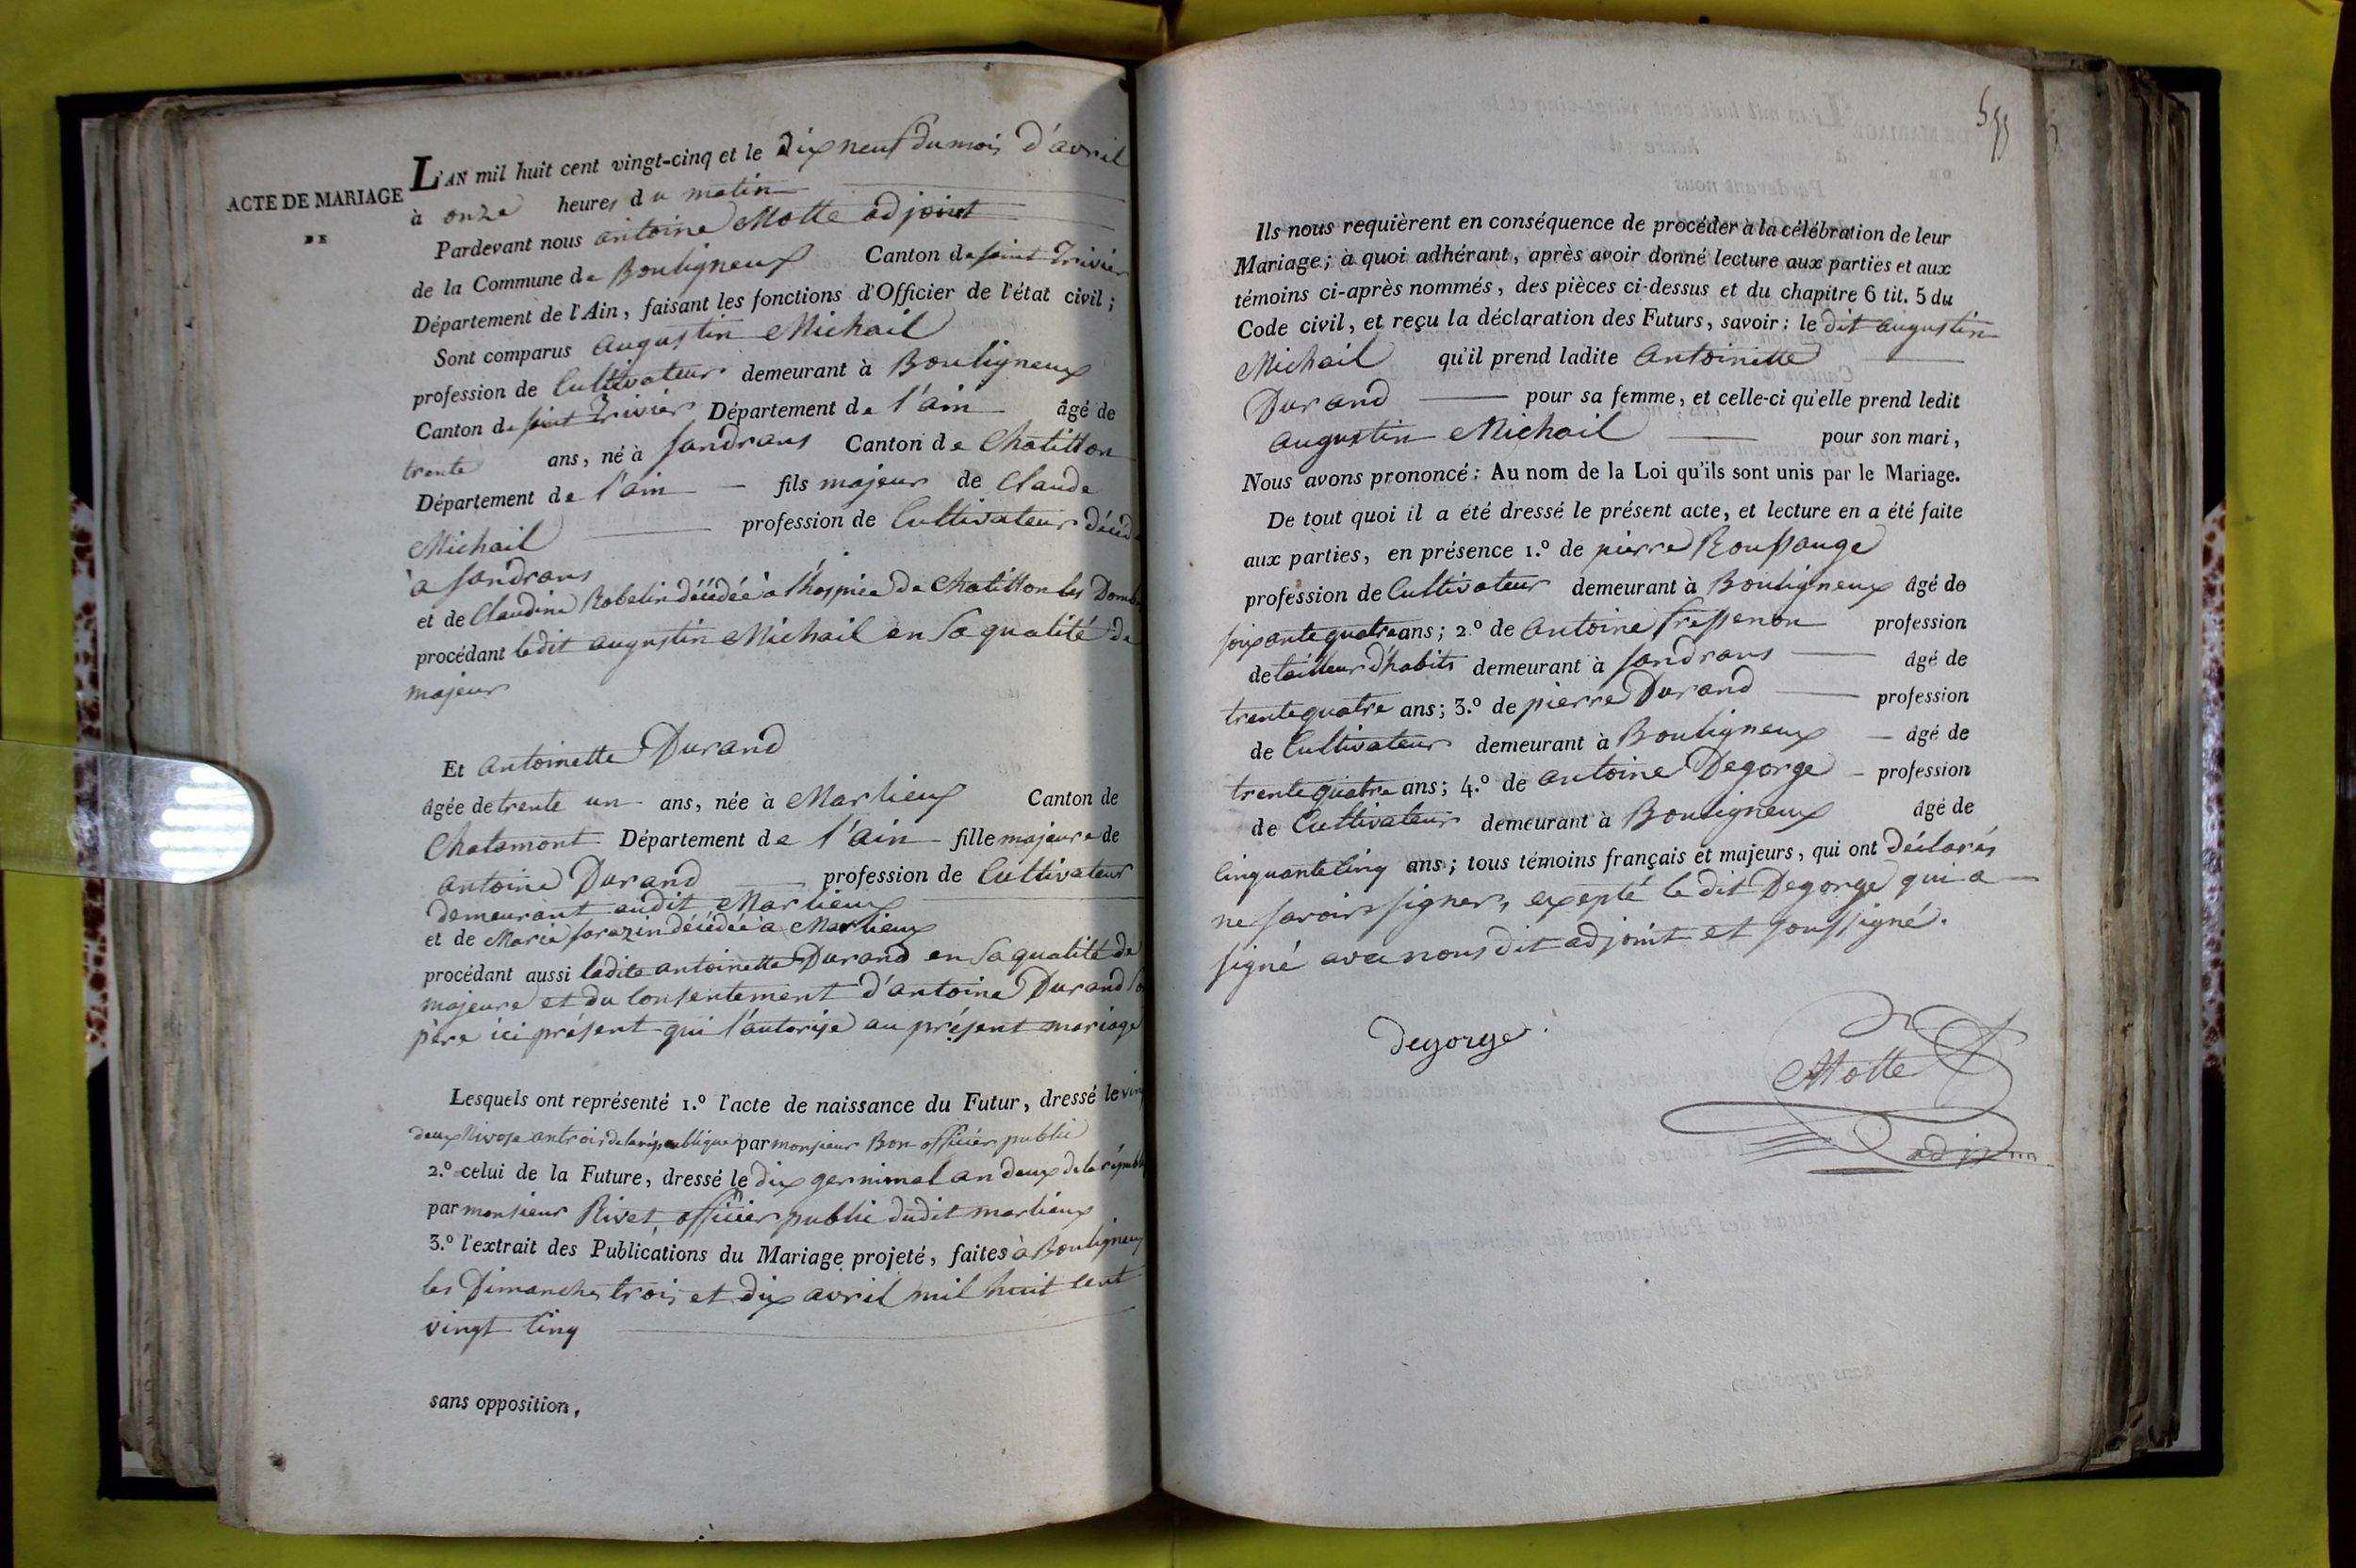 ACTE DE MARIAGE
DE
L'AN mil huit cent vingt-cinq et le dix neuf du mois d'avril
à onze heures du matin
Pardevant nous antoine Motte adjoint
de la Commune de Bouligneux Canton de saint Trivier
Département de l'Ain, faisant les fonctions d'Officier de l'état civil;
Sont comparus augustin Michail
profession de Cultivateur demeurant à Bouligneux
Canton de saint Trivier Département de l'ain âgé de
trente ans, né à sandrans Canton de Chatillon
Département de l'ain fils majeur de Claude
Michail profession de Cultivateur décédé
à sandrans
et de Claudine Robelin décédée à l'hospice de Chatillon les Dombes
procédant ledit augustin Michail en sa qualité de
majeur
Et antoinette Durand
âgée de trente un ans, née à Marlieux Canton de
Chalamont Département de l'ain fille majeure de
antoine Durand profession de Cultivateur
demeurant audit Marlieux
et de Marie sarazin décédée à Marlieux
procédant aussi ladite antoinette Durand en sa qualité de
majeure et du Consentement d'antoine Durand so
père ici présent qui l'autorise au présent mariage
Lesquels ont représenté 1.° l'acte de naissance du Futur, dressé le vin
deux Nivose an trois de la république par monsieur Bon officier public
2.° celui de la Future, dressé le dix germinal an deux de la républ
par monsieur Rivet officier public dudit marlieux
3.° l'extrait des Publications du Mariage projeté, faites à Bouligneux
les Dimanches trois et dix avril mil huit cent
vingt Cinq
sans opposition,
Ils nous requièrent en conséquence de procéder à la célébration de leur
Mariage; à quoi adhérant, après avoir donné lecture aux parties et aux
témoins ci-après nommés, des pièces ci-dessus et du chapitre 6 tit. 5 du
Code civil, et reçu la déclaration des Futurs, savoir: le dit augustin
Michail qu'il prend ladite antoinette
Durand pour sa femme, et celle-ci qu'elle prend ledit
augustin Michail pour son mari,
Nous avons prononcé: Au nom de la Loi qu'ils sont unis par le Mariage.
De tout quoi il a été dressé le présent acte, et lecture en a été faite
aux parties, en présence 1.° de pierre Roussange
profession de Cultivateur demeurant à Bouligneux âgé de
soixante quatre ans; 2.° de antoine fressenon profession
de tailleur d'habits demeurant à sandrans âgé de
trente quatre ans; 3.° de pierre Durand profession
de Cultivateur demeurant à Bouligneux âgé de
trente quatre ans; 4.° de antoine Degorge profession
de Cultivateur demeurant à Bouligneux âgé de
Cinquante Cinq ans; tous témoins français et majeurs, qui ont déclarés
ne savoir signer, exepté le dit Degorge qui a
signé avec nous dit adjoint et soussigné.
degorge
Motte